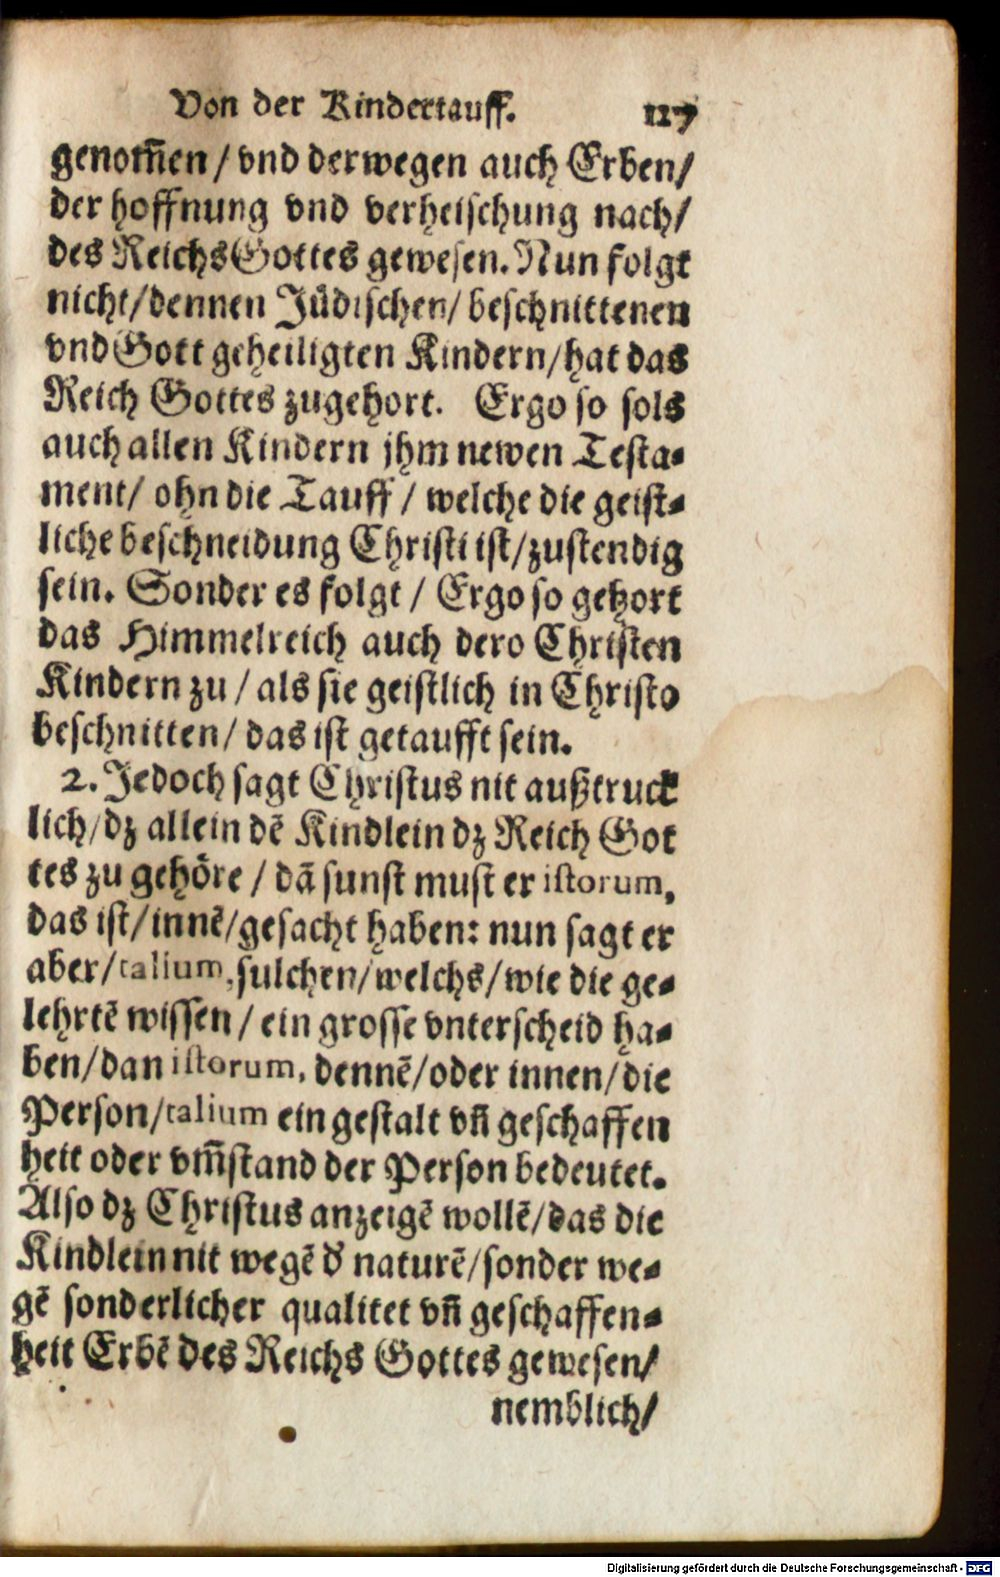 Von der Kindertauff. 117
genom̃en / vnd derwegen auch Erben/
der hoffnung vnd verheischung nach/
des Reichs Gottes gewesen. Nun folgt
nicht/dennen Jüdischen/ beschnittenen
vnd Gott geheiligten Kindern/hat das
Reich Gottes zugehort. Ergo so sols
auch allen Kindern jhm newen Testa-
ment/ ohn die Tauff / welche die geist-
liche beschneidung Christi ist/zustendig
sein. Sonder es folgt / Ergo so gehort
das Himmelreich auch dero Christen
Kindern zu / als sie geistlich in Christo
beschnitten/ das ist getaufft sein.
2. Jedoch sagt Christus nit außtruck
lich/dz allein dẽ Kindlein dz Reich Got
tes zu gehöre / dã sunst must er istorum,
das ist/innẽ/gesacht haben: nun sagt er
aber/talium, sulchen/welchs/wie die ge-
lehrtẽ wissen / ein grosse vnterscheid ha-
ben/dan istorum, dennẽ/oder innen/die
Person/talium ein gestalt vñ geschaffen
heit oder vm̃stand der Person bedeutet.
Also dz Christus anzeigẽ wollẽ/das die
Kindlein nit wegẽ d' naturẽ/sonder we-
gẽ sonderlicher qualitet vñ geschaffen-
heit Erbẽ des Reichs Gottes gewesen/
nemblich/
Digitalisierung gefördert durch die Deutsche Forschungsgemeinschaft - DFG